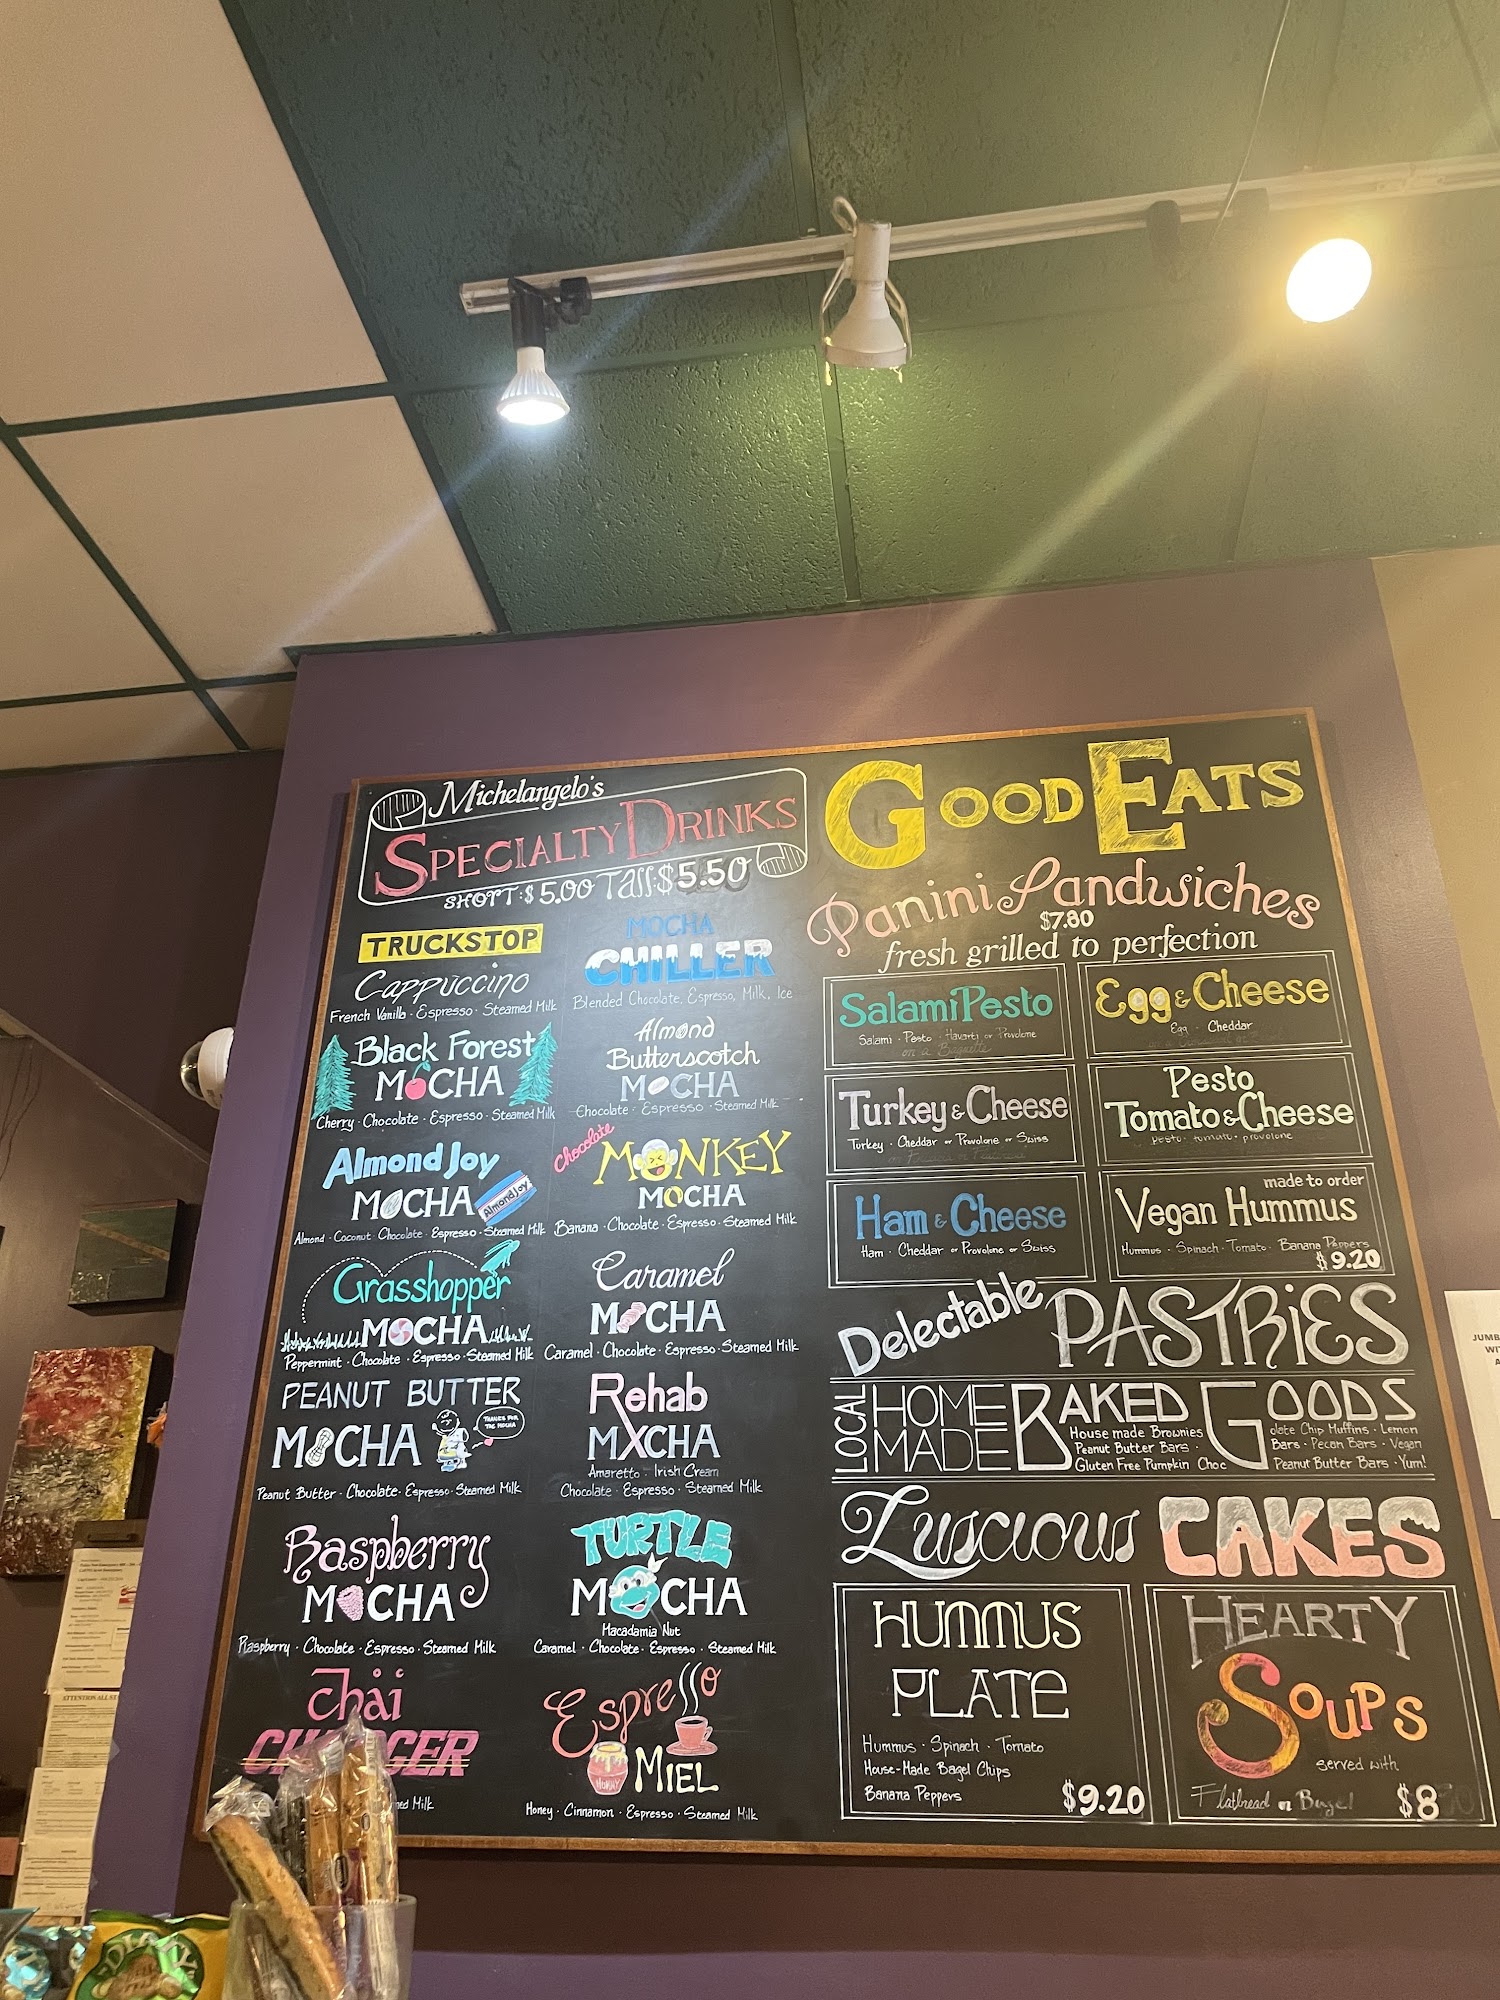 Michelangelo's
SPECIALTY DRINKS
SHORT: $5.00 Tall: $5.50
TRUCKSTOP
Cappuccino
French Vanilla · Espresso · Steamed Milk
Black Forest
MOCHA
Cherry · Chocolate · Espresso · Steamed Milk
Almond Joy
MOCHA
Almond Joy
Almond · Coconut · Chocolate · Espresso · Steamed Milk
Grasshopper
MOCHA
Peppermint · Chocolate · Espresso · Steamed Milk
PEANUT BUTTER
MOCHA
THANKS FOR
THE MOCHA
Peanut Butter · Chocolate · Espresso · Steamed Milk
Raspberry
MOCHA
Raspberry · Chocolate · Espresso · Steamed Milk
Chai
Milk
MOCHA
CHILLER
Blended Chocolate, Espresso, Milk, Ice
Almond
Butterscotch
MOCHA
Chocolate · Espresso · Steamed Milk
Chocolate
MONKEY
MOCHA
Banana · Chocolate · Espresso · Steamed Milk
Caramel
MOCHA
Caramel · Chocolate · Espresso · Steamed Milk
Rehab
MXCHA
Amaretto · Irish Cream
Chocolate · Espresso · Steamed Milk
TURTLE
MOCHA
Macadamia Nut
Caramel · Chocolate · Espresso · Steamed Milk
Espresso
MIEL
HONEY
Honey · Cinnamon · Espresso · Steamed Milk
GOOD EATS
Panini Sandwiches
$7.80
fresh grilled to perfection
Salami Pesto
Salami · Pesto · Havarti or Provolone
on a Baguette
Egg & Cheese
Egg · Cheddar
Turkey & Cheese
Turkey · Cheddar or Provolone or Swiss
Pesto
Tomato & Cheese
Pesto · tomato · provolone
Ham & Cheese
Ham · Cheddar or Provolone or Swiss
made to order
Vegan Hummus
Hummus · Spinach · Tomato · Banana Peppers
$9.20
Delectable PASTRiES
LOCAL HOME MADE BAKED GOODS
House made Brownies
Peanut Butter Bars ·
Gluten Free Pumpkin Choc
olate Chip Muffins · Lemon
Bars · Pecan Bars · Vegan
Peanut Butter Bars · Yum!
Luscious CAKES
HUMMUS
PLATE
Hummus · Spinach · Tomato
House-Made Bagel Chips
Banana Peppers
$9.20
HEARTY
SOUPS
served with
Flatbread or Bagel
$8